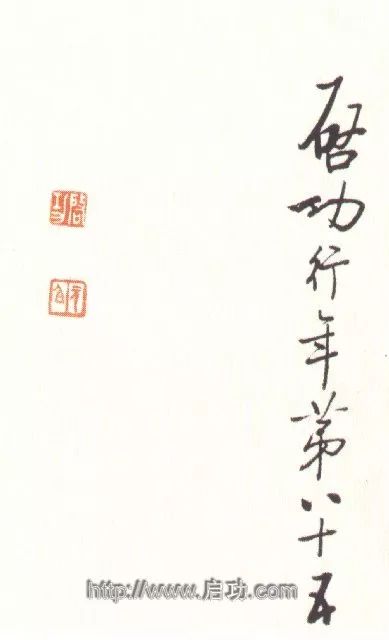 啓功行年第八十五
http://www.启功.com